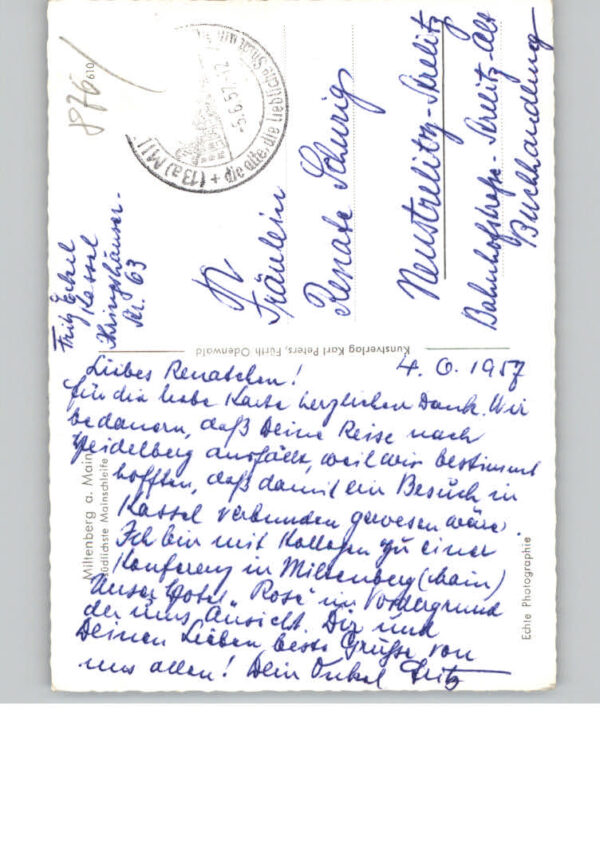 876/
610
(13a) MIL
die alte, die liebliche Stadt am
-5.6.57-12
Fritz Eckel
Kassel
Kringshäuser-
Str. 63
An
Fräulein
Renate Schurig
Neustrelitz-Strelitz
Bahnhofstraße-Strelitz-Alt
Buchhandlung
Kunstverlag Karl Peters, Fürth Odenwald
Liebes Renatchen! 4. 6. 1957
für die liebe Karte herzlichen Dank. Wir
bedauern, daß Deine Reise nach
Heidelberg ausfällt, weil wir bestimmt
hofften, daß damit ein Besuch in
Kassel verbunden gewesen wäre.
Ich bin mit Kollegen zu einer
Konferenz in Miltenberg (Main)
Unser Hotel "Rose" im Vordergrund
der ums. Ansicht. Dir und
Deinen Lieben beste Grüße von
uns allen! Dein Onkel Fritz
Miltenberg a. Main
Südlichste Mainschleife
Echte Photographie